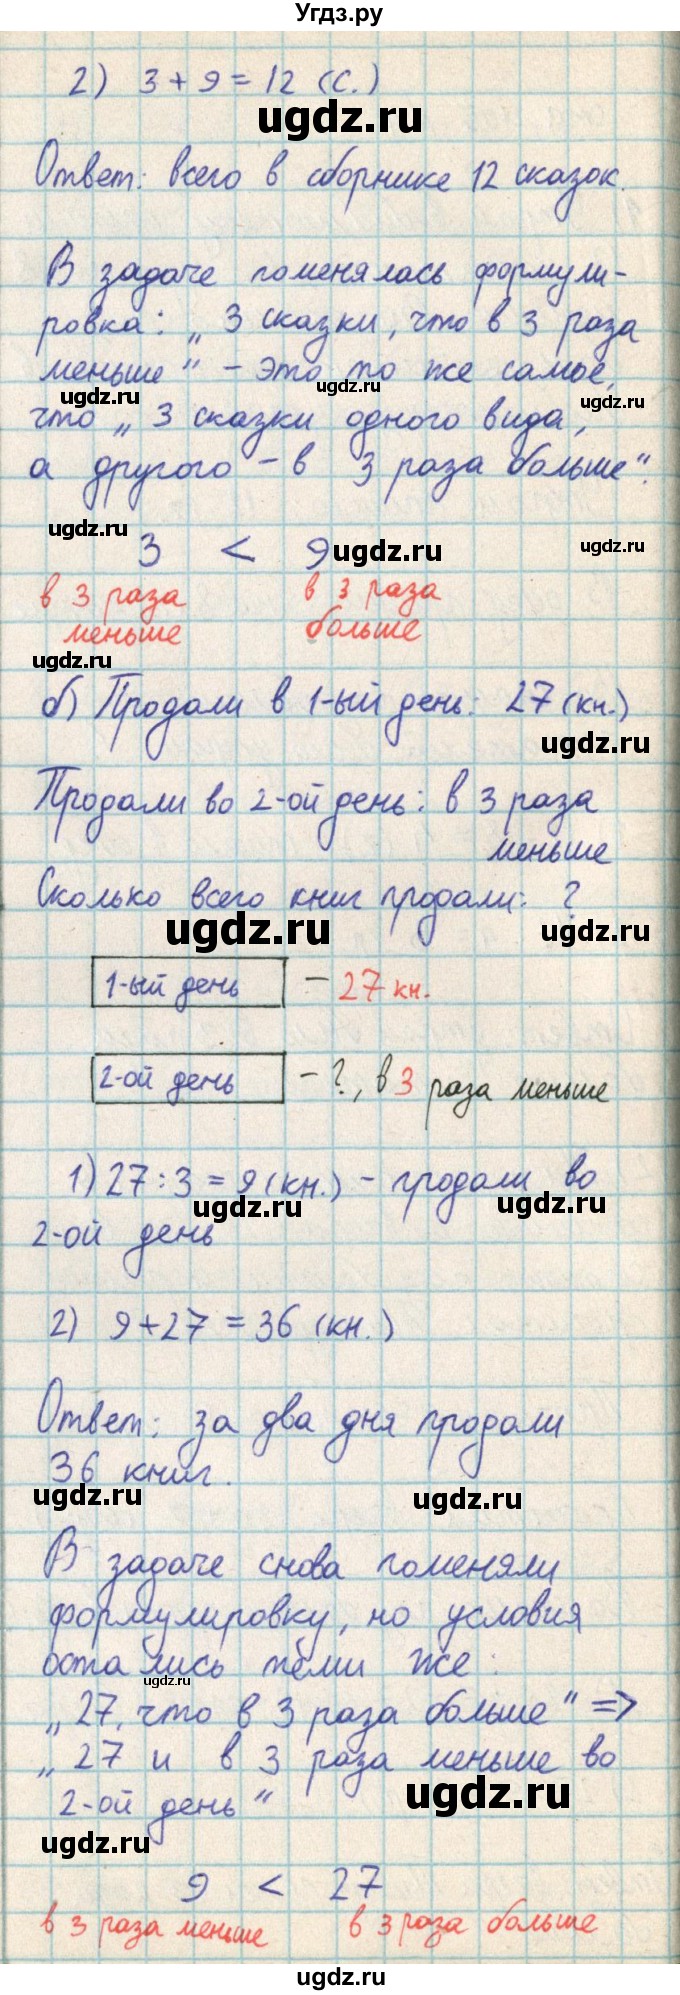 Угдз.ру
2) 3 + 9 = 12 (с.)
ugdz.ru
Ответ: всего в сборнике 12 сказок.
В задаче поменялась формули-
ровка: „3 сказки, что в 3 раза
меньше" - это то же самое,
ugdz.ru ugdz.ru ugdz.ru
что „3 сказки одного вида,
а другого - в 3 раза больше".
ugdz.ru
3 < 9
ugdz.ru ugdz.ru
в 3 раза в 3 раза
меньше больше
ugdz.ru
б) Продали в 1-ый день: 27 (кн.)
ugdz.ru
Продали во 2-ой день: в 3 раза
меньше
Сколько всего книг продали: ?
ugdz.ru ugdz.ru
1-ый день - 27 кн.
2-ой день - ?, в 3 раза меньше
1) 27 : 3 = 9 (кн.) - продали во
ugdz.ru ugdz.ru
2-ой день
2) 9 + 27 = 36 (кн.)
Ответ: за два дня продали
36 книг.
ugdz.ru ugdz.ru
В задаче снова поменяли
формулировку, но условия
остались теми же:
ugdz.ru
„27, что в 3 раза больше" =>
„27 и в 3 раза меньше во
2-ой день"
ugdz.ru
ugdz.ru
9 < 27
в 3 раза меньше в 3 раза больше
ugdz.ru